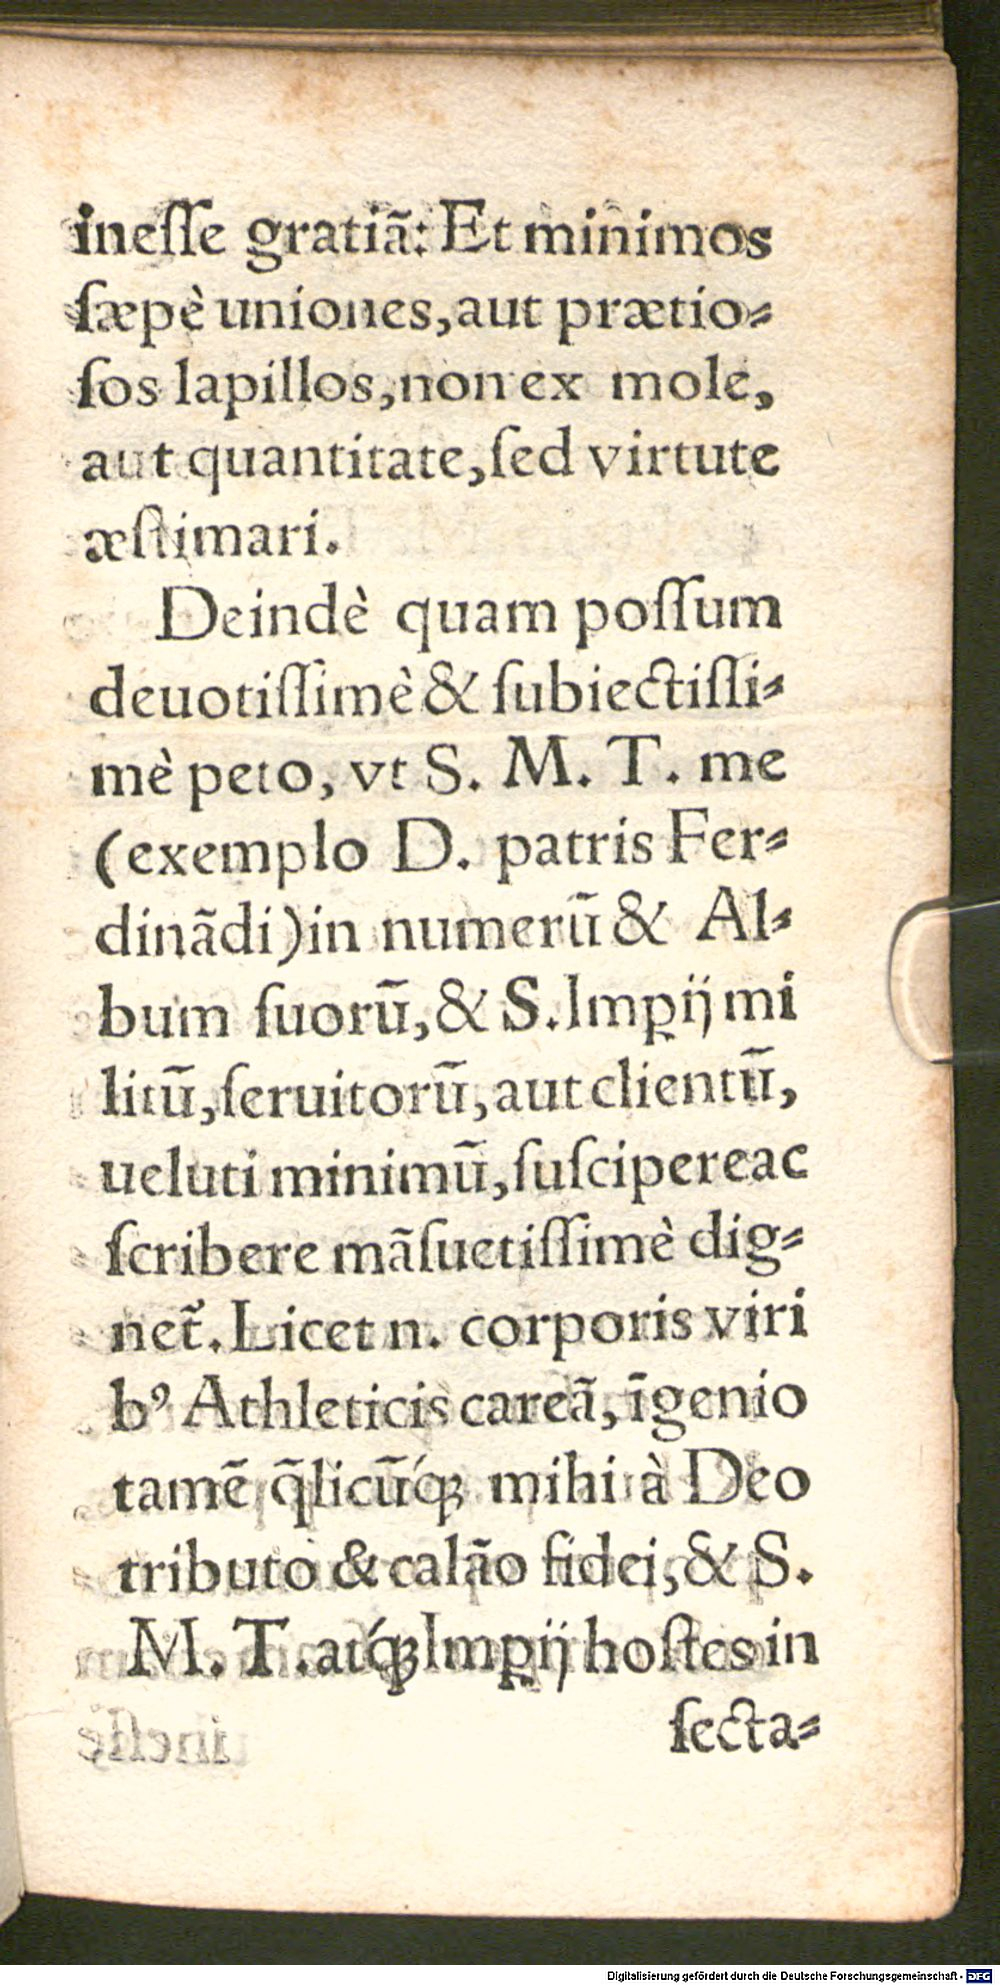 ineſſe gratiã: Et minimos
ſæpè uniones, aut prætio-
ſos lapillos, non ex mole,
aut quantitate, ſed virtute
æſtimari.
Deindè quam poſſum
deuotiſſimè & ſubiectiſſi-
mè peto, vt S. M. T. me
(exemplo D. patris Fer-
dinãdi) in numerũ & Al-
bum ſuorũ, & S. Imꝑij mi
litũ, ſeruitorũ, aut clientũ,
ueluti minimũ, ſuſcipere ac
ſcribere mãſuetiſſimè dig-
net̃. Licet n. corporis viri
bꝰ Athleticis careã, ĩgenio
tamẽ q̃licũq́ꝫ mihi à Deo
tributo & calão fidei, & S.
M. T. atq́ꝫ Imꝑij hoſtes in
ſecta-
Digitalisierung gefördert durch die Deutsche Forschungsgemeinschaft - DFG